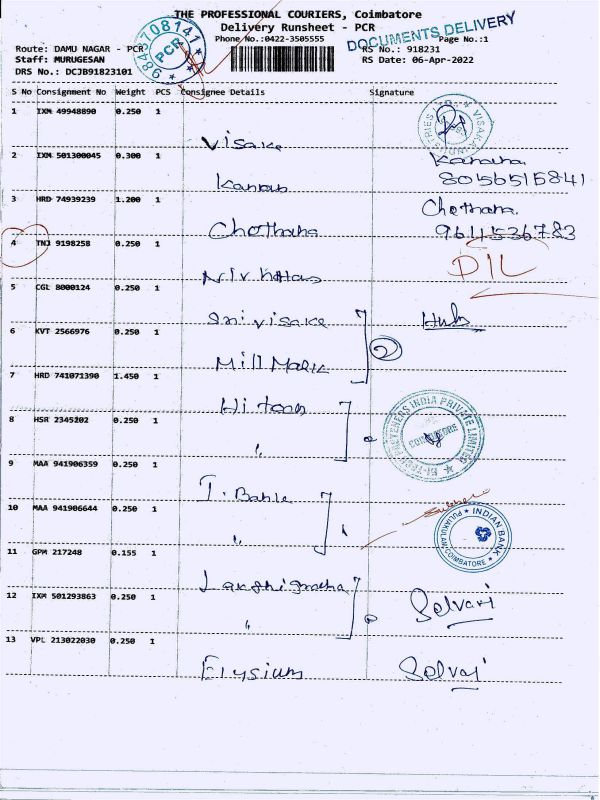 THE PROFESSIONAL COURIERS, Coimbatore
Delivery Runsheet - PCR
DOCUMENTS DELIVERY
Phone No.:0422-3505555
Page No.:1
Route: DAMU NAGAR - PCR
RS No.: 918231
Staff: MURUGESAN
RS Date: 06-Apr-2022
DRS No.: DCJB91823101
9843708141
PCR
S No Consignment No Weight PCS Consignee Details Signature
1 IXM 49948890 0.250 1
Visaka
2 IXM 501300045 0.300 1
Kannan
8056515841
3 HRD 74939239 1.200 1
Chothana
Chothana.
9641536783
4 TNJ 9198258 0.250 1
DIL
5 CGL 8000124 0.250 1
Sri Visaka
6 KVT 2566976 0.250 1
2
Mill
7 HRD 741071390 1.450 1
Hi tech
8 HSR 2345202 0.250 1
"
INDIA PRIVATE LIMITED
COIMBATORE
9 MAA 941906359 0.250 1
I. Bank
10 MAA 941906644 0.250 1
"
INDIAN BANK
PULIAKULAM COIMBATORE
11 GPM 217248 0.155 1
12 IXM 501293863 0.250 1
"
Selvari
13 VPL 213022030 0.250 1
Elysium